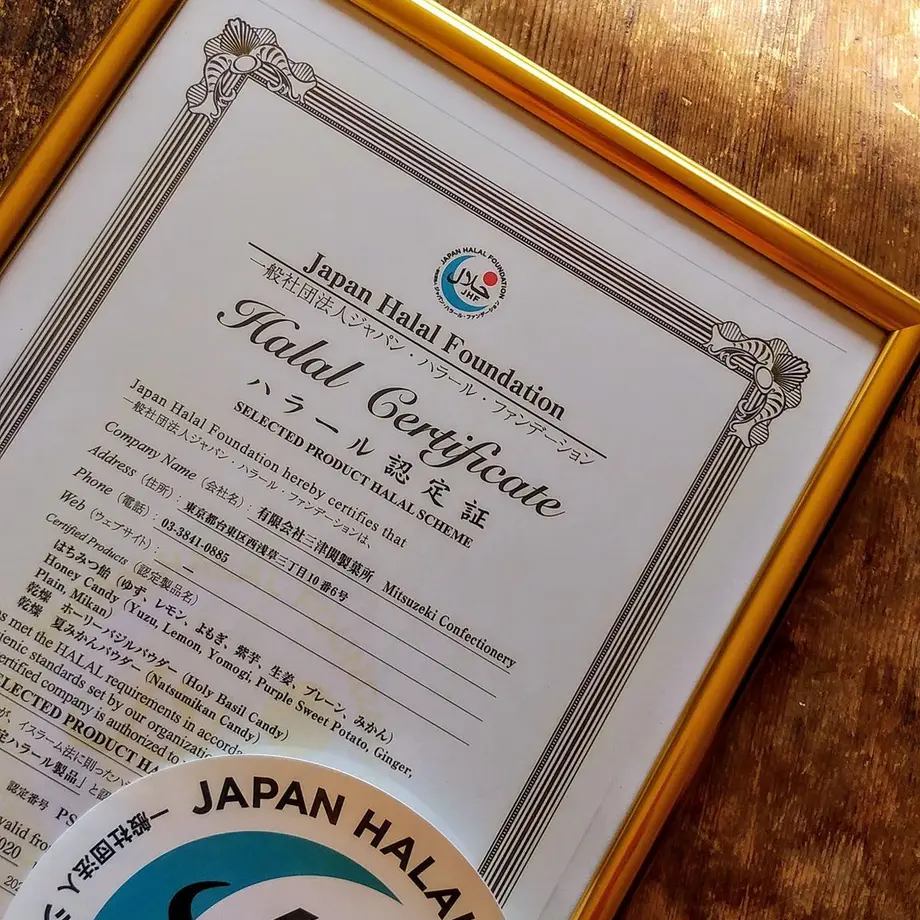 JAPAN HALAL FOUNDATION
حلال
JHF
ジャパン・ハラール・ファンデーション
Japan Halal Foundation
一般社団法人ジャパン・ハラール・ファンデーション
Halal Certificate
ハラール認定証
SELECTED PRODUCT HALAL SCHEME
Japan Halal Foundation hereby certifies that
一般社団法人ジャパン・ハラール・ファンデーションは、
Company Name (会社名) : 有限会社三津関製菓所 Mitsuzeki Confectionery
Address (住所) : 東京都台東区西浅草三丁目10番6号
Phone (電話) : 03-3841-0885
Web (ウェブサイト) : ー
Certified Products (認定製品名)
はちみつ飴 (ゆず、レモン、よもぎ、紫芋、生姜 プレーン、みかん)
Honey Candy (Yuzu, Lemon, Yomogi, Purple Sweet Potato, Ginger,
Plain, Mikan)
乾燥 ホーリーバジルパウダー (Holy Basil Candy)
乾燥 夏みかんパウダー (Natsumikan Candy)
s met the HALAL requirements in accorda
ienic standards set by our organizatio
ertified company is authorized to
ELECTED PRODUCT HA
が、イスラーム法に則ったハ
定ハラール製品」と認
認定番号 PS
valid fro
020
202
JAPAN HALAL
一般社団法人